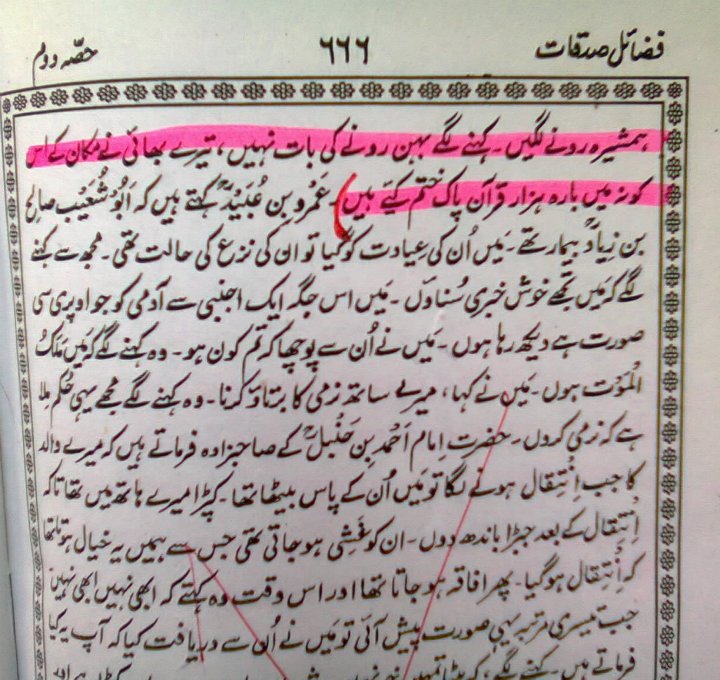 فضائل صدقات ۶۶۶ حصّہ دوم
ہمشیرہ رونے لگیں۔ کہنے لگے بہن رونے کی بات نہیں، تیرے بھائی نے مکان کے اس
کونہ میں بارہ ہزار قرآن پاک ختم کیے ہیں۔ عَمْرو بن عُبَیْدؒ کہتے ہیں کہ اَبُو شُعَیْب صالح
بن زِیادؒ بیمار تھے۔ مَیں اُن کی عِیادت کو گیا تو ان کی نزع کی حالت تھی۔ مجھ سے کہنے
لگے کہ مَیں تجھے خوش خبری سُناؤں۔ مَیں اس جگہ ایک اجنبی سے آدمی کو جو اوپری سی
صورت ہے دیکھ رہا ہوں۔ مَیں نے اُن سے پوچھا کہ تم کون ہو۔ وہ کہنے لگے کہ مَیں مَلَکُ
الْمَوْت ہوں۔ مَیں نے کہا، میرے ساتھ نرمی کا برتاؤ کرنا۔ وہ کہنے لگے مجھے یہی حُکم مِلا
ہے کہ نرمی کروں۔ حضرت اِمام اَحْمد بِن حَنْبلؒ کے صاحبزادہ فرماتے ہیں کہ میرے والد
کا جب اِنْتِقال ہونے لگا تو مَیں اُن کے پاس بیٹھا تھا۔ کپڑا میرے ہاتھ میں تھا تاکہ
اِنْتِقال کے بعد جبڑا باندھ دوں۔ ان کو غَشِی ہو جاتی تھی جس سے ہمیں یہ خیال ہوتا تھا
کہ اِنْتِقال ہو گیا۔ پھر افاقہ ہو جاتا تھا اور اس وقت وہ کہتے کہ ابھی نہیں ابھی نہیں
جب تیسری مرتبہ یہی صورت پیش آئی تو مَیں نے اُن سے دریافت کیا کہ آپ یہ کیا
فرماتے ہیں۔ کہنے لگے، کہ بیٹا تمہیں